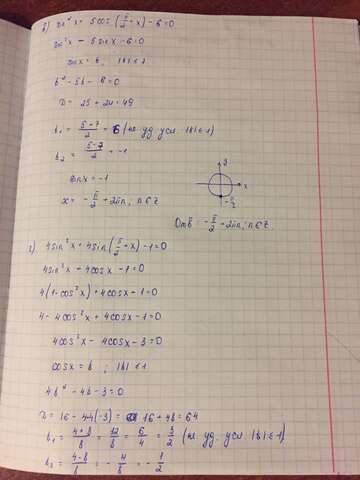 б) sin² x = 5 cos (π/2 + x) - 6 = 0
sin² x - 5 sin x - 6 = 0
sin x = b, |b| ≤ 1
b² - 5b - 6 = 0
D = 25 + 24 = 49
b₁ = (5-7)/2 = 6 (не уд. усл. |b| ≤ 1)
b₂ = (5-7)/2 = -1
sin x = -1
x = -π/2 + 2πn, n ∈ Z
x
-π/2
Ответ: -π/2 + 2πn; n ∈ Z.
г) 4 sin² x + 4 sin (π/2 + x) - 1 = 0
4 sin² x + 4 cos x - 1 = 0
4(1 - cos² x) + 4 cos x - 1 = 0
4 - 4 cos² x + 4 cos x - 1 = 0
4 cos² x - 4 cos x - 3 = 0
cos x = b ; |b| ≤ 1
4b² - 4b - 3 = 0
D = 16 - 4·4(-3) = 16 + 48 = 64
b₁ = (4+8)/8 = 12/8 = 6/4 = 3/2 (не уд. усл. |b| ≤ 1)
b₂ = (4-8)/8 = -4/8 = -1/2